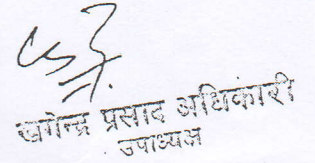 खगेन्द्र प्रसाद अधिकारी
उपाध्यक्ष